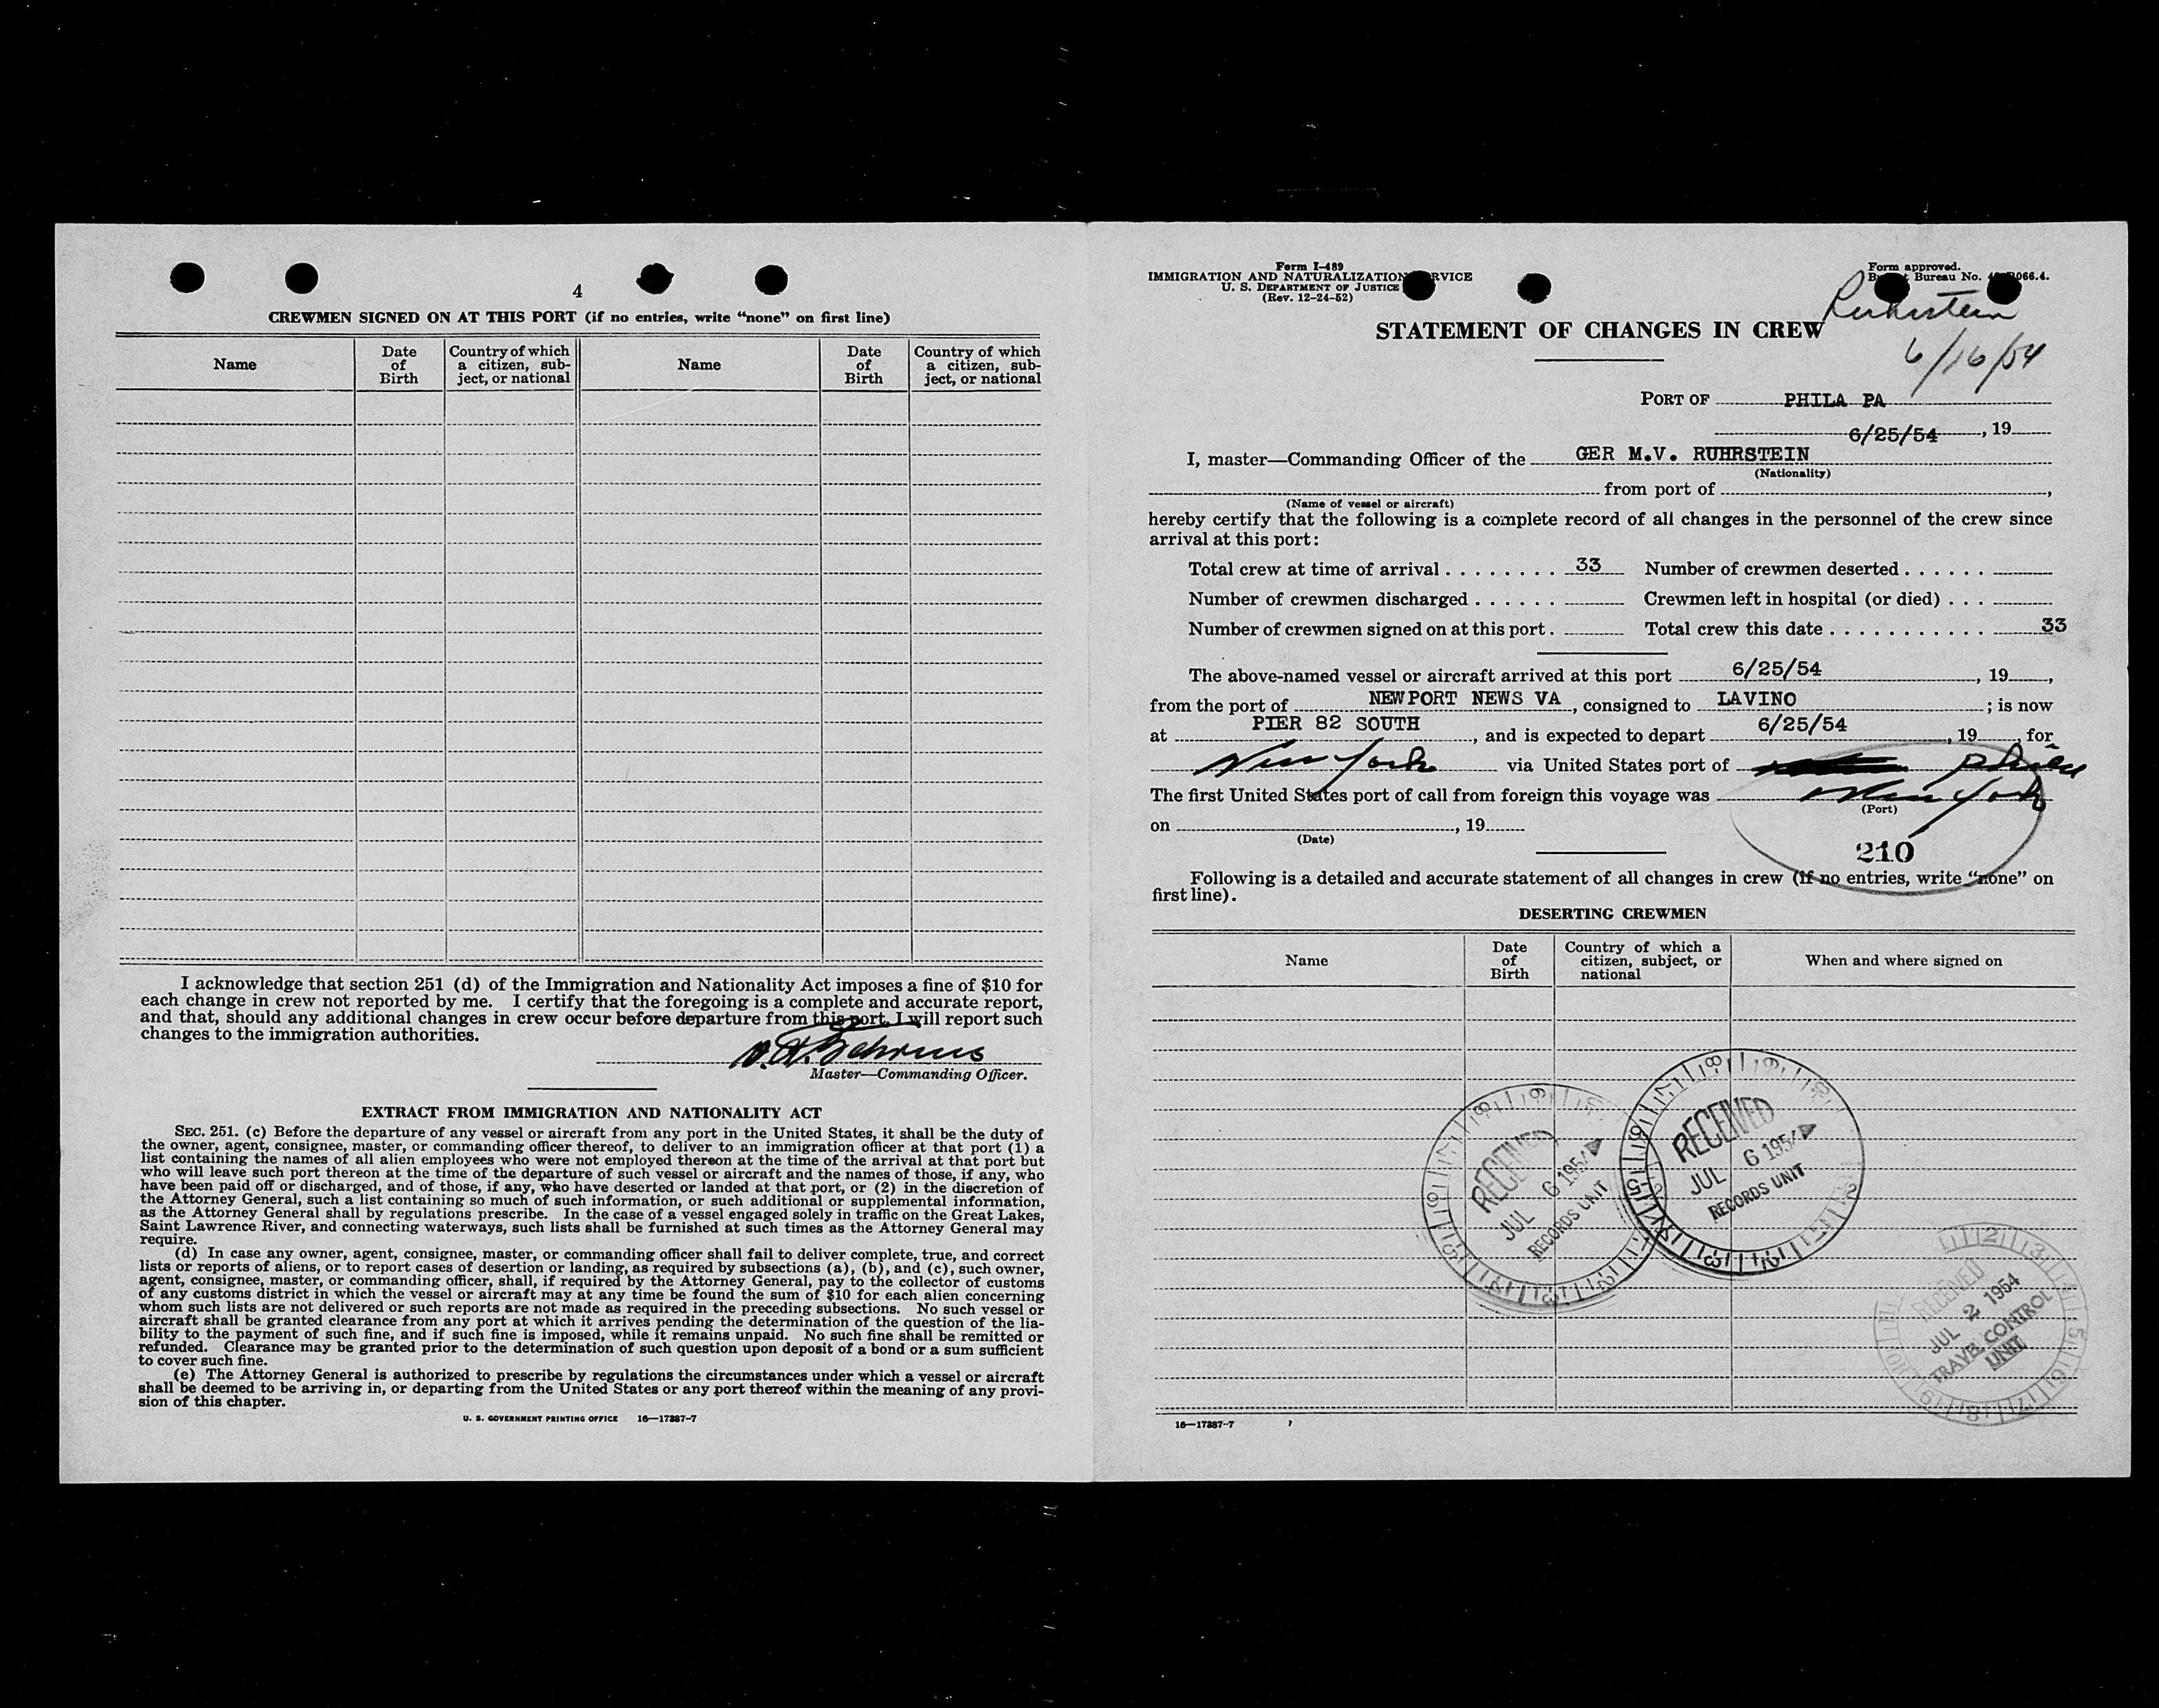 4
CREWMEN SIGNED ON AT THIS PORT (if no entries, write “none” on first line)
Name
Date of Birth
Country of which a citizen, subject, or national
Name
Date of Birth
Country of which a citizen, subject, or national
I acknowledge that section 251 (d) of the Immigration and Nationality Act imposes a fine of $10 for
each change in crew not reported by me. I certify that the foregoing is a complete and accurate report,
and that, should any additional changes in crew occur before departure from this port, I will report such
changes to the immigration authorities.
Master—Commanding Officer.
EXTRACT FROM IMMIGRATION AND NATIONALITY ACT
SEC. 251. (c) Before the departure of any vessel or aircraft from any port in the United States, it shall be the duty of
the owner, agent, consignee, master, or commanding officer thereof, to deliver to an immigration officer at that port (1) a
list containing the names of all alien employees who were not employed thereon at the time of the arrival at that port but
who will leave such port thereon at the time of the departure of such vessel or aircraft and the names of those, if any, who
have been paid off or discharged, and of those, if any, who have deserted or landed at that port, or (2) in the discretion of
the Attorney General, such a list containing so much of such information, or such additional or supplemental information,
as the Attorney General shall by regulations prescribe. In the case of a vessel engaged solely in traffic on the Great Lakes,
Saint Lawrence River, and connecting waterways, such lists shall be furnished at such times as the Attorney General may
require.
(d) In case any owner, agent, consignee, master, or commanding officer shall fail to deliver complete, true, and correct
lists or reports of aliens, or to report cases of desertion or landing, as required by subsections (a), (b), and (c), such owner,
agent, consignee, master, or commanding officer, shall, if required by the Attorney General, pay to the collector of customs
of any customs district in which the vessel or aircraft may at any time be found the sum of $10 for each alien concerning
whom such lists are not delivered or such reports are not made as required in the preceding subsections. No such vessel or
aircraft shall be granted clearance from any port at which it arrives pending the determination of the question of the lia-
bility to the payment of such fine, and if such fine is imposed, while it remains unpaid. No such fine shall be remitted or
refunded. Clearance may be granted prior to the determination of such question upon deposit of a bond or a sum sufficient
to cover such fine.
(e) The Attorney General is authorized to prescribe by regulations the circumstances under which a vessel or aircraft
shall be deemed to be arriving in, or departing from the United States or any port thereof within the meaning of any provi-
sion of this chapter.
U. S. GOVERNMENT PRINTING OFFICE 16—17387-7
Form I-489
IMMIGRATION AND NATURALIZATION RVICE
U. S. DEPARTMENT OF JUSTICE
(Rev. 12-24-52)
Form approved.
Bureau No. 066.4.
Ruhrstein
6/16/54
STATEMENT OF CHANGES IN CREW
PORT OF PHILA PA
6/25/54, 19
I, master—Commanding Officer of the GER M.V. RUHRSTEIN
(Nationality)
from port of ,
(Name of vessel or aircraft)
hereby certify that the following is a complete record of all changes in the personnel of the crew since
arrival at this port:
Total crew at time of arrival 33 Number of crewmen deserted
Number of crewmen discharged Crewmen left in hospital (or died)
Number of crewmen signed on at this port. Total crew this date 33
The above-named vessel or aircraft arrived at this port 6/25/54, 19,
from the port of NEWPORT NEWS VA, consigned to LAVINO; is now
at PIER 82 SOUTH, and is expected to depart 6/25/54, 19, for
New York via United States port of Phila
The first United States port of call from foreign this voyage was New York
(Port)
on , 19
(Date)
210
Following is a detailed and accurate statement of all changes in crew (if no entries, write “none” on
first line).
DESERTING CREWMEN
Name
Date of Birth
Country of which a citizen, subject, or national
When and where signed on
RECEIVED
JUL 6 1954
RECORDS UNIT
RECEIVED
JUL 6 1954
RECORDS UNIT
RECEIVED
JUL 2 1954
TRAVEL CONTROL
UNIT
16—17387-7